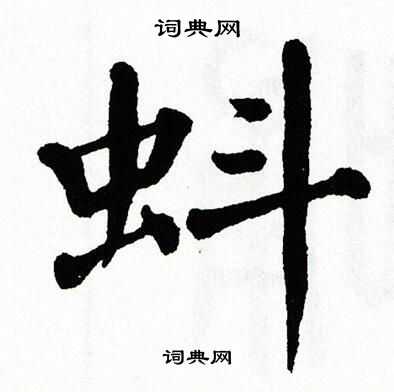 词典网
蚪
词典网